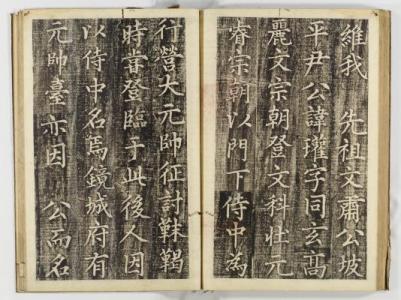 維我 先祖文肅公坡
平尹公諱瓘字同玄高
麗文宗朝登文科壯元
睿宗朝以門下侍中為
行營大元帥征討靺鞨
時嘗登臨于此後人因
以侍中名焉鏡城府有
元帥臺亦因 公而名